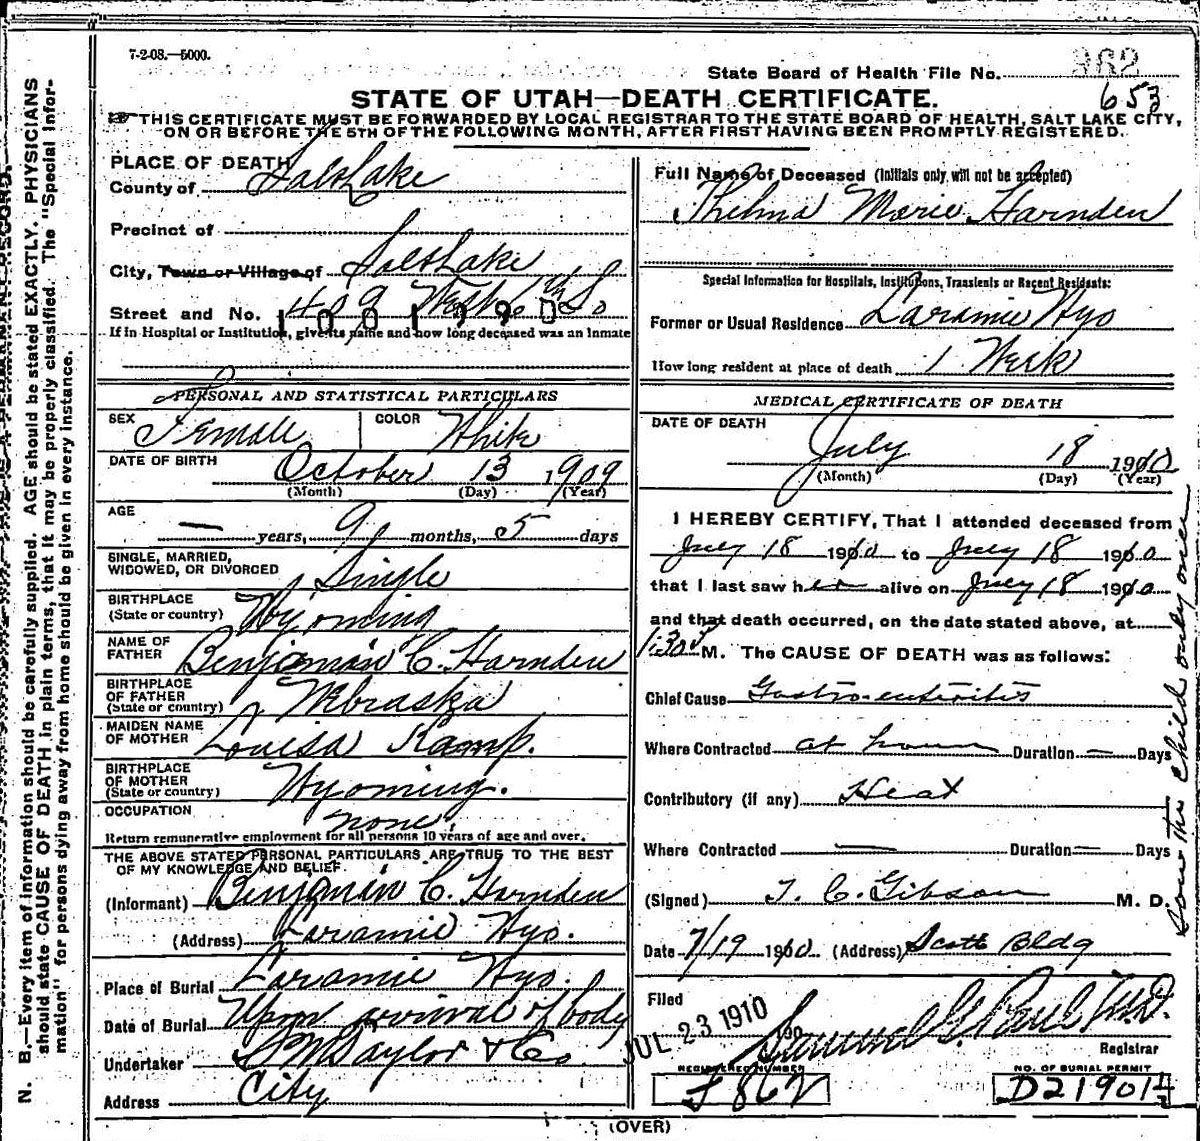 7-2-08.—5000.
State Board of Health File No. 362
653
STATE OF UTAH—DEATH CERTIFICATE.
THIS CERTIFICATE MUST BE FORWARDED BY LOCAL REGISTRAR TO THE STATE BOARD OF HEALTH, SALT LAKE CITY,
ON OR BEFORE THE 5TH OF THE FOLLOWING MONTH, AFTER FIRST HAVING BEEN PROMPTLY REGISTERED.
PLACE OF DEATH
County of Salt Lake
Precinct of
City, Town or Village of Salt Lake
Street and No. 409 West 6th So
If in Hospital or Institution, give its name and how long deceased was an inmate
PERSONAL AND STATISTICAL PARTICULARS
SEX Female COLOR White
DATE OF BIRTH October 13 1909
(Month) (Day) (Year)
AGE
— years, 9 months, 5 days
SINGLE, MARRIED,
WIDOWED, OR DIVORCED Single
BIRTHPLACE
(State or country) Wyoming
NAME OF
FATHER Benjamin C. Harnden
BIRTHPLACE
OF FATHER
(State or country) Nebraska
MAIDEN NAME
OF MOTHER Louisa Kamp.
BIRTHPLACE
OF MOTHER
(State or country) Wyoming.
OCCUPATION none.
Return remunerative employment for all persons 10 years of age and over.
THE ABOVE STATED PERSONAL PARTICULARS ARE TRUE TO THE BEST
OF MY KNOWLEDGE AND BELIEF.
(Informant) Benjamin C. Harnden
(Address) Laramie Wyo.
Place of Burial Laramie Wyo.
Date of Burial Upon arrival of body
Undertaker S M Taylor & Co.
Address City
Full Name of Deceased (Initials only will not be accepted)
Thelma Marie Harnden
Special Information for Hospitals, Institutions, Transients or Recent Residents:
Former or Usual Residence Laramie Wyo
How long resident at place of death 1 Week
MEDICAL CERTIFICATE OF DEATH
DATE OF DEATH
July 18 1910
(Month) (Day) (Year)
I HEREBY CERTIFY, That I attended deceased from
July 18 1910 to July 18 1910
that I last saw her alive on July 18 1910
and that death occurred, on the date stated above, at
1:30 P M. The CAUSE OF DEATH was as follows:
Chief Cause Gastro-enteritis
Where Contracted at home Duration — Days
Contributory (if any) Heat
Where Contracted — Duration — Days
(Signed) T. C. Gibson M. D.
Date 7/19 1910 (Address) Scott Bldg
Filed JUL 23 1910 190 Samuel G. Paul M.D.
Registrar
REGISTERED NUMBER
J 862
NO. OF BURIAL PERMIT
D21901½
(OVER)
Saw this child only once
N. B.—Every item of information should be carefully supplied. AGE should be stated EXACTLY. PHYSICIANS
should state CAUSE OF DEATH in plain terms, that it may be properly classified. The "Special Infor-
mation" for persons dying away from home should be given in every instance.